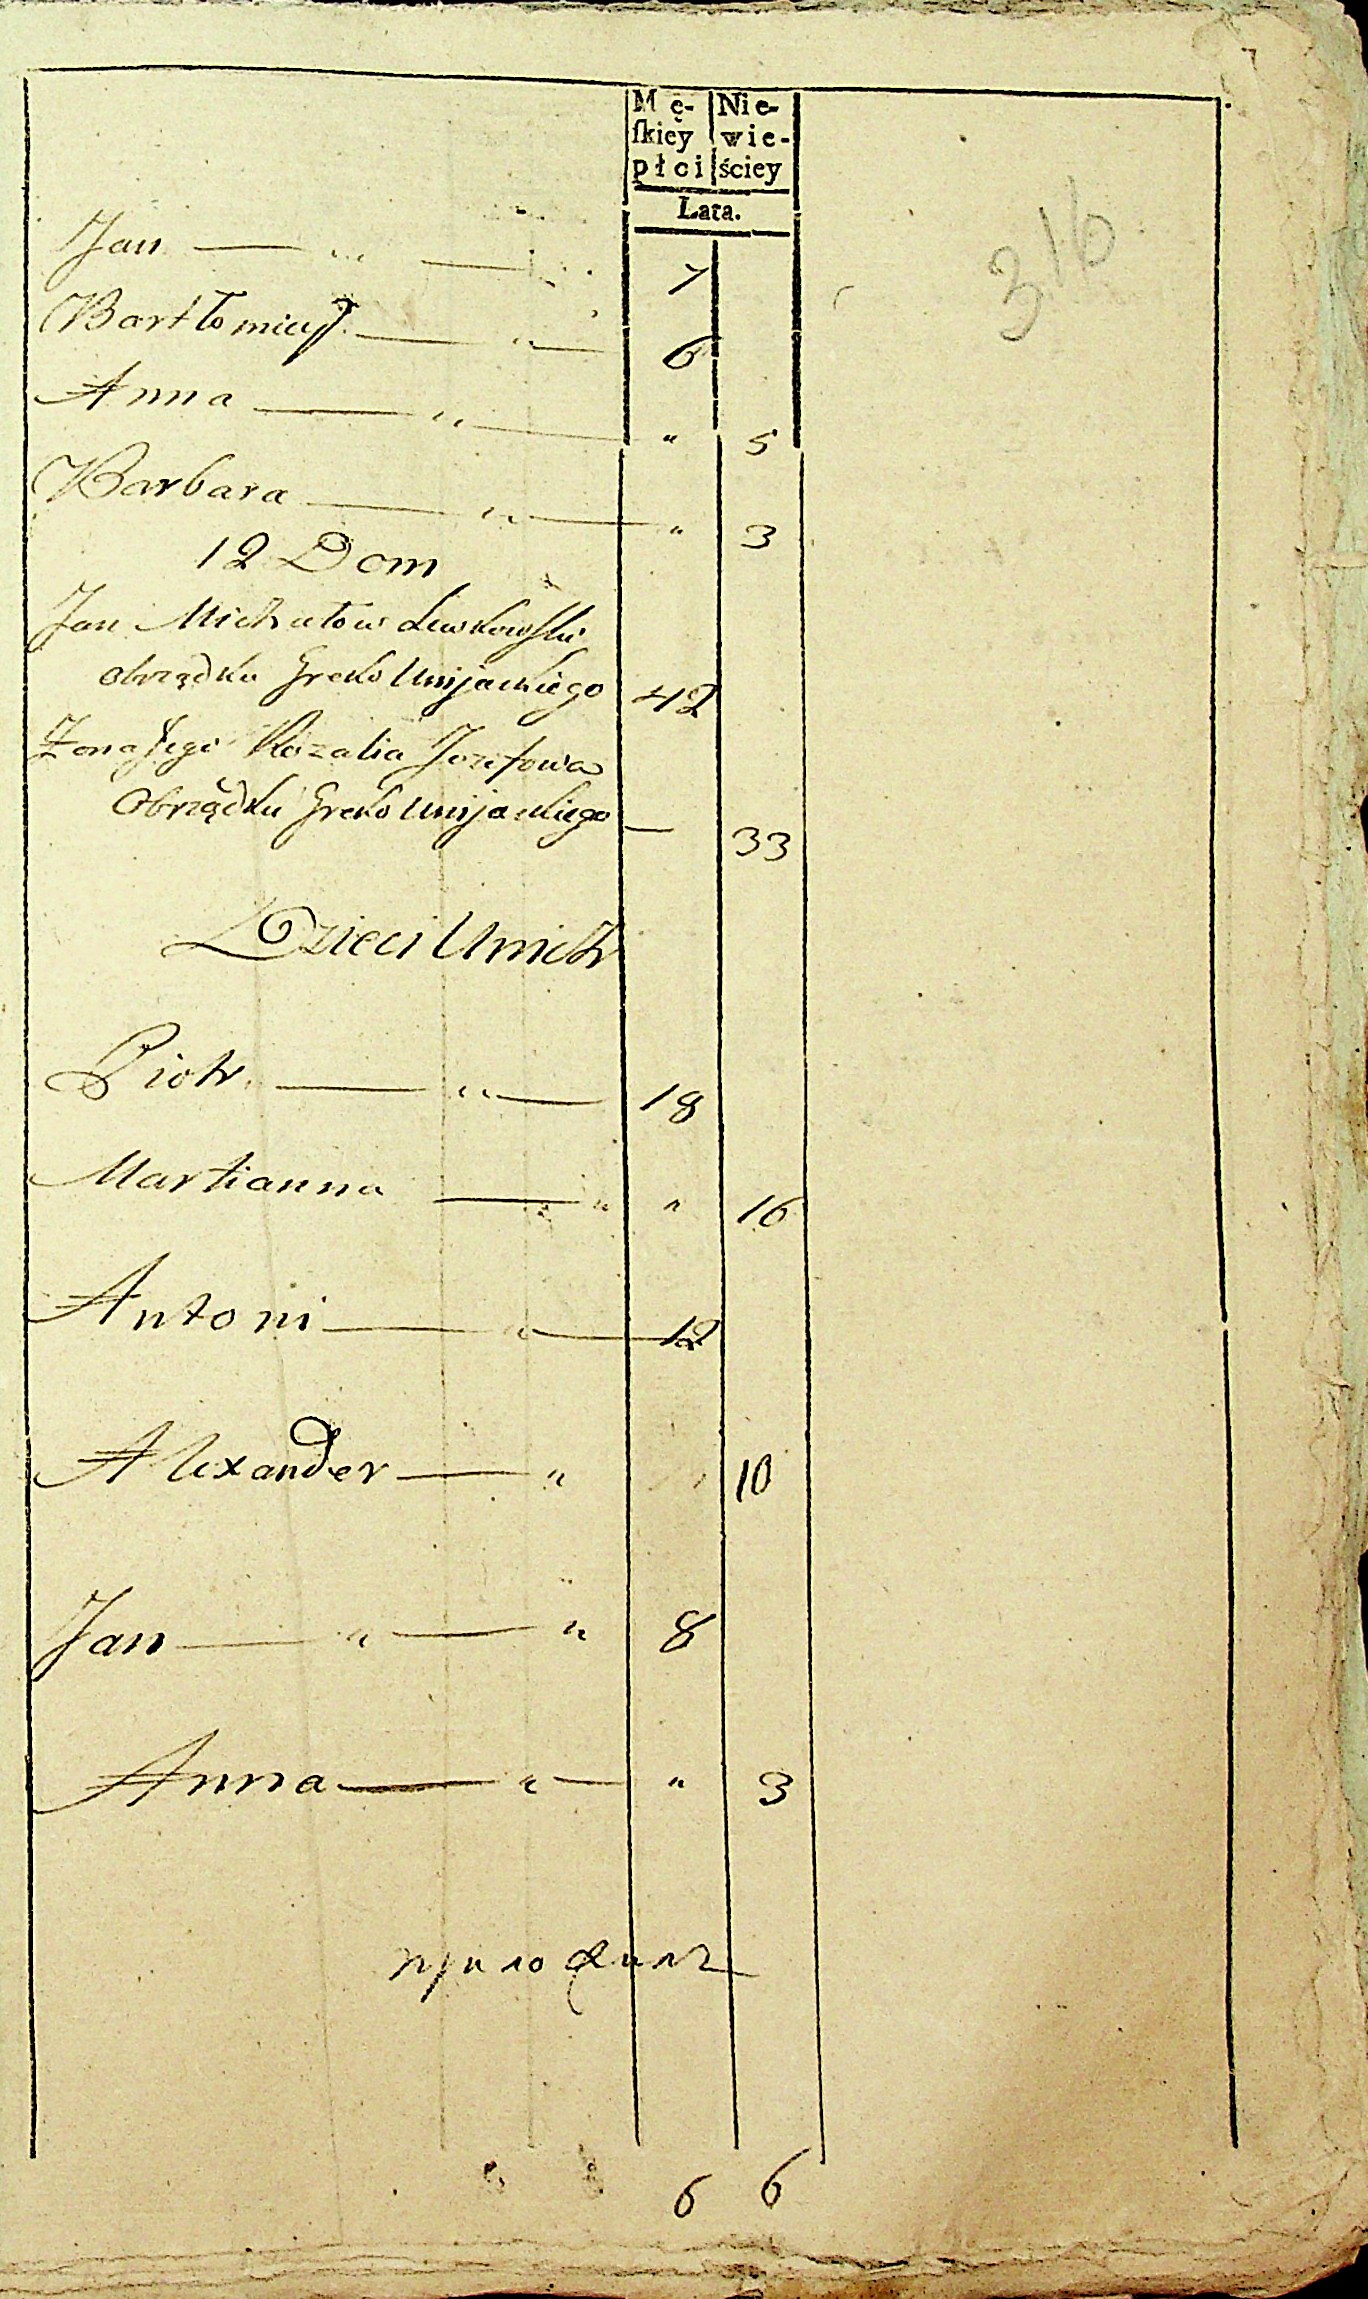 7
Mę-
ſkiey
płci
Nie-
wie-
ściey
Lata.
316
Jan — „ — 7
Bartłomiey — „ — 6
Anna — „ — „ 5
Barbara — „ — „ 3
12 Dom
Jan Michałow Lewkowſki
obrządku Greko Unijackiego 42
Żona Jego Rozalia Jozefowa
Obrządku Greko Unijackiego — 33
Dzieci Unich
Piotr — „ — 18
Martianna — „ „ 16
Antoni — „ — 12
Alexander — „ 10
Jan — „ — „ 8
Anna — „ — „ 3
6 6